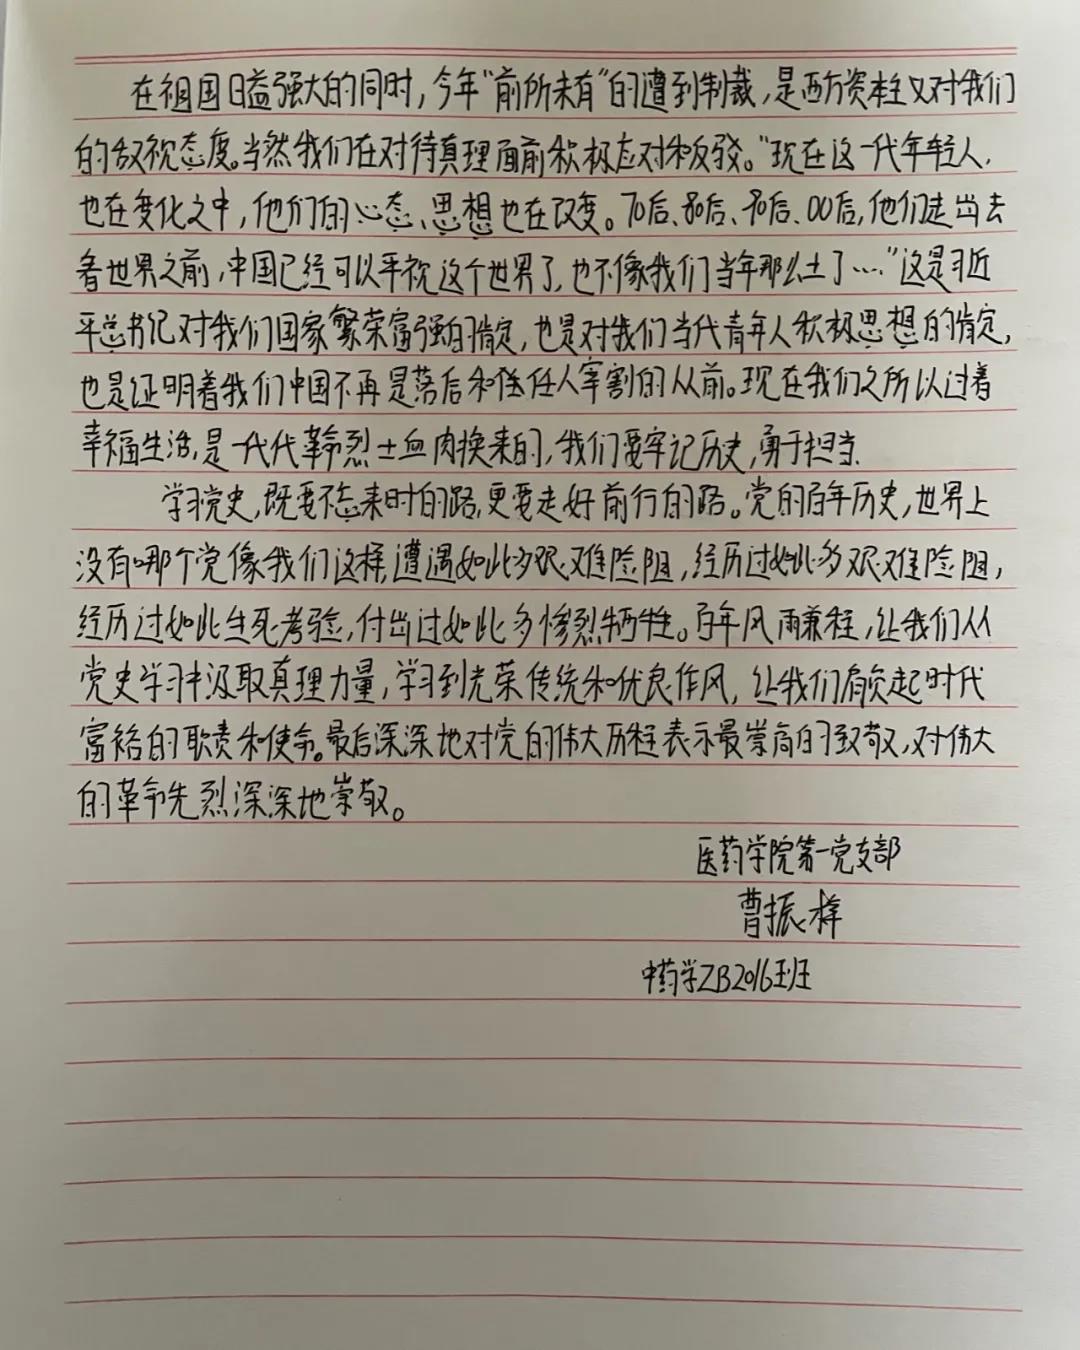 在祖国日益强大的同时，今年“前所未有”的遭到制裁，是西方资本主义对我们
的敌视态度。当然我们在对待真理面前积极应对和反驳。“现在这一代年轻人，
也在变化之中，他们的心态、思想也在改变。70后、80后、90后、00后，他们走出去
看世界之前，中国已经可以平视这个世界了，也不像我们当年那么土了…”这是习近
平总书记对我们国家繁荣富强的肯定，也是对我们当代青年人积极思想的肯定，
也是证明着我们中国不再是落后和任任人宰割的从前。现在我们之所以过着
幸福生活，是一代代革命烈士血肉换来的，我们要牢记历史，勇于担当.
学习党史，既要不忘来时的路，更要走好前行的路。党的百年历史，世界上
没有哪个党像我们这样，遭遇如此多艰难险阻，经历过如此多艰难险阻，
经历过如此生死考验，付出过如此多惨烈牺牲。百年风雨兼程，让我们从
党史学习中汲取真理力量，学习到光荣传统和优良作风，让我们肩负起时代
富裕的职责和使命。最后深深地对党的伟大历程表示最崇高的致敬，对伟大
的革命先烈深深地崇敬。
医药学院第一党支部
曹振祥
中药学ZB2016班